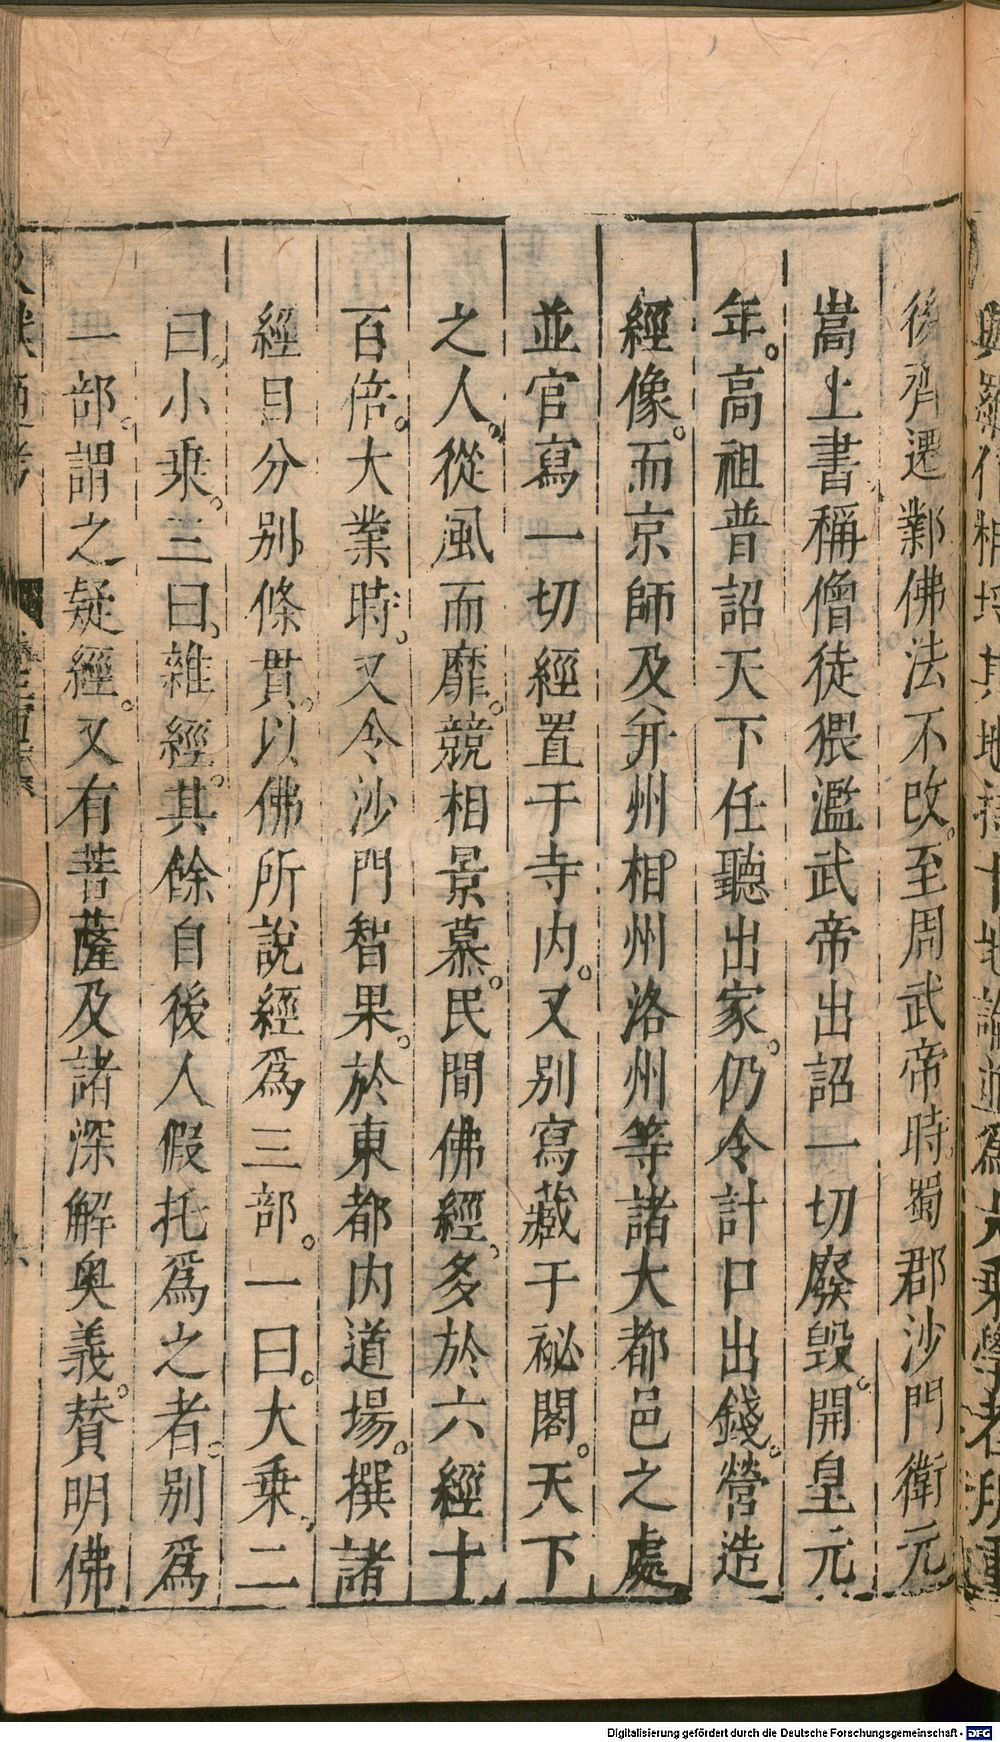 後齊遷鄴佛法不改。至周武帝時。蜀郡沙門衛元
嵩上書、稱僧徒猥濫武帝出詔一切廢毁。開皇元
年。高祖普詔天下任聽出家。仍令計口出錢。營造
經像。而京師及并州相州洛州等諸大都邑之處
並官寫一切經置于寺内。又别寫藏于祕閣。天下
之人。從風而靡。競相景慕。民間佛經。多於六經十
百倍。大業時。又令沙門智果。於東都内道場。撰諸
經目分别條貫。以佛所說經爲三部。一曰。大乗、二
曰。小乗。三曰、雜經。其餘自後人假托爲之者。别爲
一部。謂之疑經。又有菩薩及諸深解奥義。賛明佛
Digitalisierung gefördert durch die Deutsche Forschungsgemeinschaft - DFG